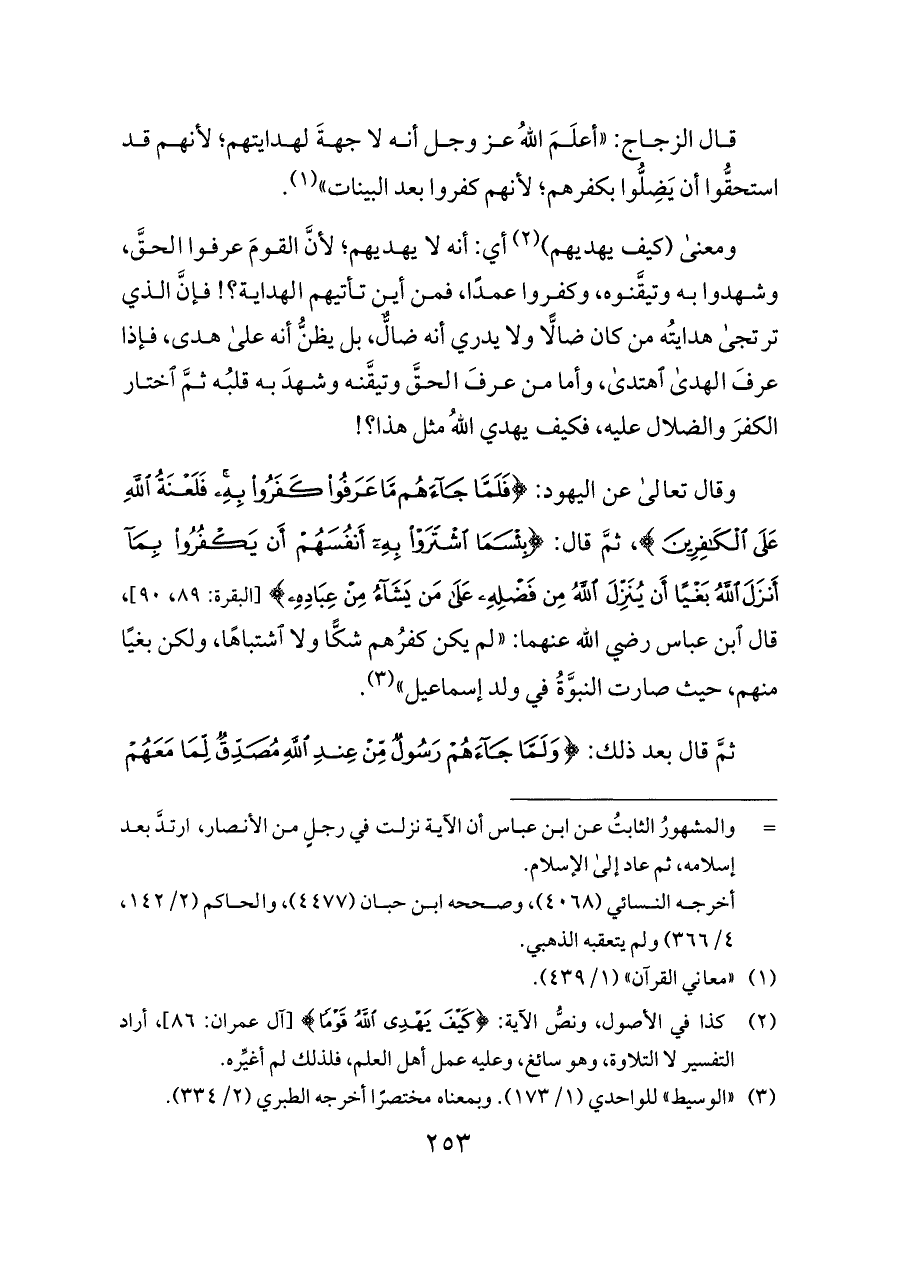 قال الزجاج: «أعلَمَ اللهُ عز وجل أنه لا جهةَ لهدايتهم؛ لأنهم قد
استحقُّوا أن يَضِلُّوا بكفرهم؛ لأنهم كفروا بعد البينات»(١).
ومعنىٰ (كيف يهديهم)(٢) أي: أنه لا يهديهم؛ لأنَّ القومَ عرفوا الحقَّ،
وشهدوا به وتيقَّنوه، وكفروا عمدًا، فمن أين تأتيهم الهداية؟! فإنَّ الذي
ترتجىٰ هدايتُه من كان ضالًّا ولا يدري أنه ضالٌّ، بل يظنُّ أنه علىٰ هدى، فإذا
عرفَ الهدىٰ ٱهتدىٰ، وأما من عرفَ الحقَّ وتيقَّنه وشهدَ به قلبُه ثمَّ ٱختار
الكفرَ والضلال عليه، فكيف يهدي اللهُ مثل هذا؟!
وقال تعالىٰ عن اليهود: ﴿فَلَمَّا جَآءَهُم مَّا عَرَفُوا۟ كَفَرُوا۟ بِهِۦۚ فَلَعْنَةُ ٱللَّهِ
عَلَى ٱلْكَٰفِرِينَ﴾، ثمَّ قال: ﴿بِئْسَمَا ٱشْتَرَوْا۟ بِهِۦٓ أَنفُسَهُمْ أَن يَكْفُرُوا۟ بِمَآ
أَنزَلَ ٱللَّهُ بَغْيًا أَن يُنَزِّلَ ٱللَّهُ مِن فَضْلِهِۦ عَلَىٰ مَن يَشَآءُ مِنْ عِبَادِهِۦ﴾ [البقرة: ٨٩، ٩٠]،
قال ٱبن عباس رضي الله عنهما: «لم يكن كفرُهم شكًّا ولا ٱشتباهًا، ولكن بغيًا
منهم، حيث صارت النبوَّةُ في ولد إسماعيل»(٣).
ثمَّ قال بعد ذلك: ﴿وَلَمَّا جَآءَهُمْ رَسُولٌ مِّنْ عِندِ ٱللَّهِ مُصَدِّقٌ لِّمَا مَعَهُمْ
= والمشهورُ الثابتُ عن ابن عباس أن الآية نزلت في رجلٍ من الأنصار، ارتدَّ بعد
إسلامه، ثم عاد إلىٰ الإسلام.
أخرجه النسائي (٤٠٦٨)، وصححه ابن حبان (٤٤٧٧)، والحاكم (٢/ ١٤٢،
٤/ ٣٦٦) ولم يتعقبه الذهبي.
(١) «معاني القرآن» (١/ ٤٣٩).
(٢) كذا في الأصول، ونصُّ الآية: ﴿كَيْفَ يَهْدِى ٱللَّهُ قَوْمًا﴾ [آل عمران: ٨٦]، أراد
التفسير لا التلاوة، وهو سائغ، وعليه عمل أهل العلم، فلذلك لم أغيِّره.
(٣) «الوسيط» للواحدي (١/ ١٧٣). وبمعناه مختصرًا أخرجه الطبري (٢/ ٣٣٤).
٢٥٣